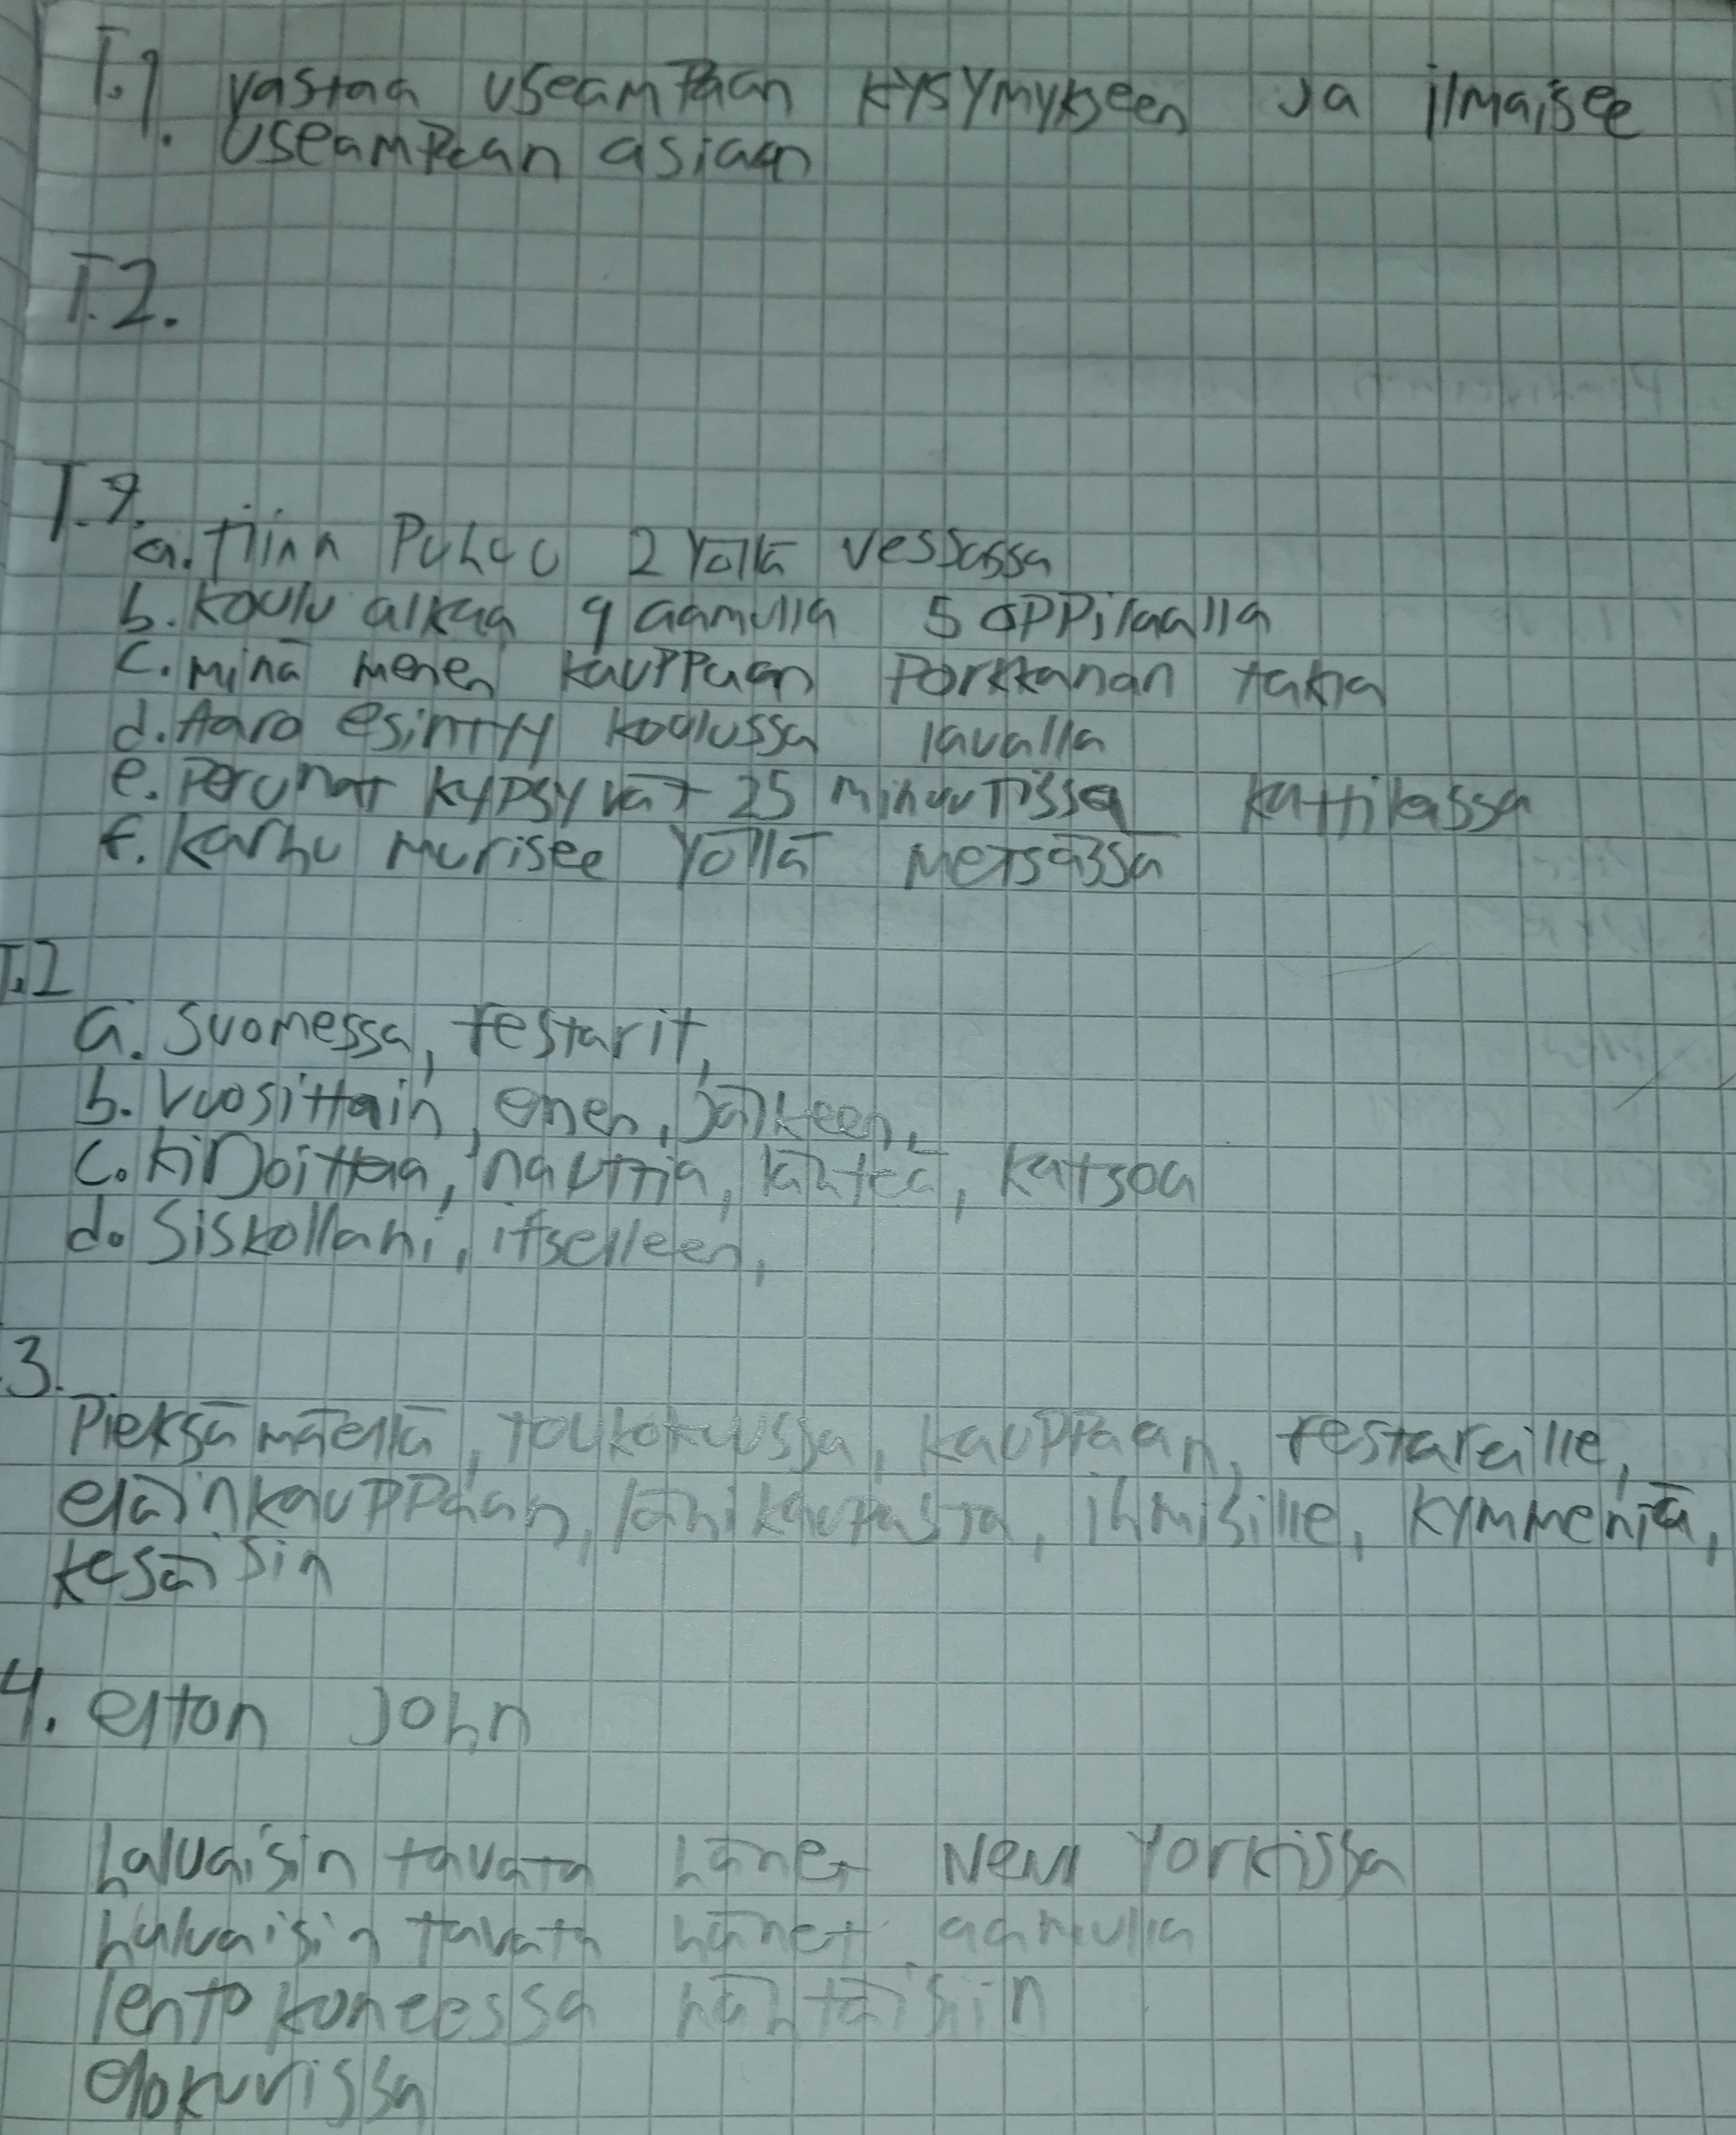 T.1. vastaa useampaan kysymykseen ja ilmaisee
useampaan asiaan
T.2.
T.9.
a. tiina Puhuu 2 yöllä vessassa
b. koulu alkaa 9 aamulla 5 oppilaalla
c. minä menen kauppaan Porkkanan takia
d. Aaro esintyy koulussa lavalla
e. Perunat kypsyvät 25 minuutissa kattilassa
f. karhu murisee yöllä metsässä
T.2
a. Suomessa, festarit,
b. Vuosittain, ennen, jälkeen,
c. kirjoittaa, nauttia, lähteä, katsoa
d. Siskollani, itselleen,
3.
Pieksämäellä, toukokuussa, kauppaan, festareille,
eläinkauppaan, länikaupasta, ihmisille, kymmeniä,
kesäisin
4. elton John
haluaisin tavata hänet New Yorkissa
haluaisin tavata hänet aamulla
lentokoneessa nähtäisiin
elokuvissa